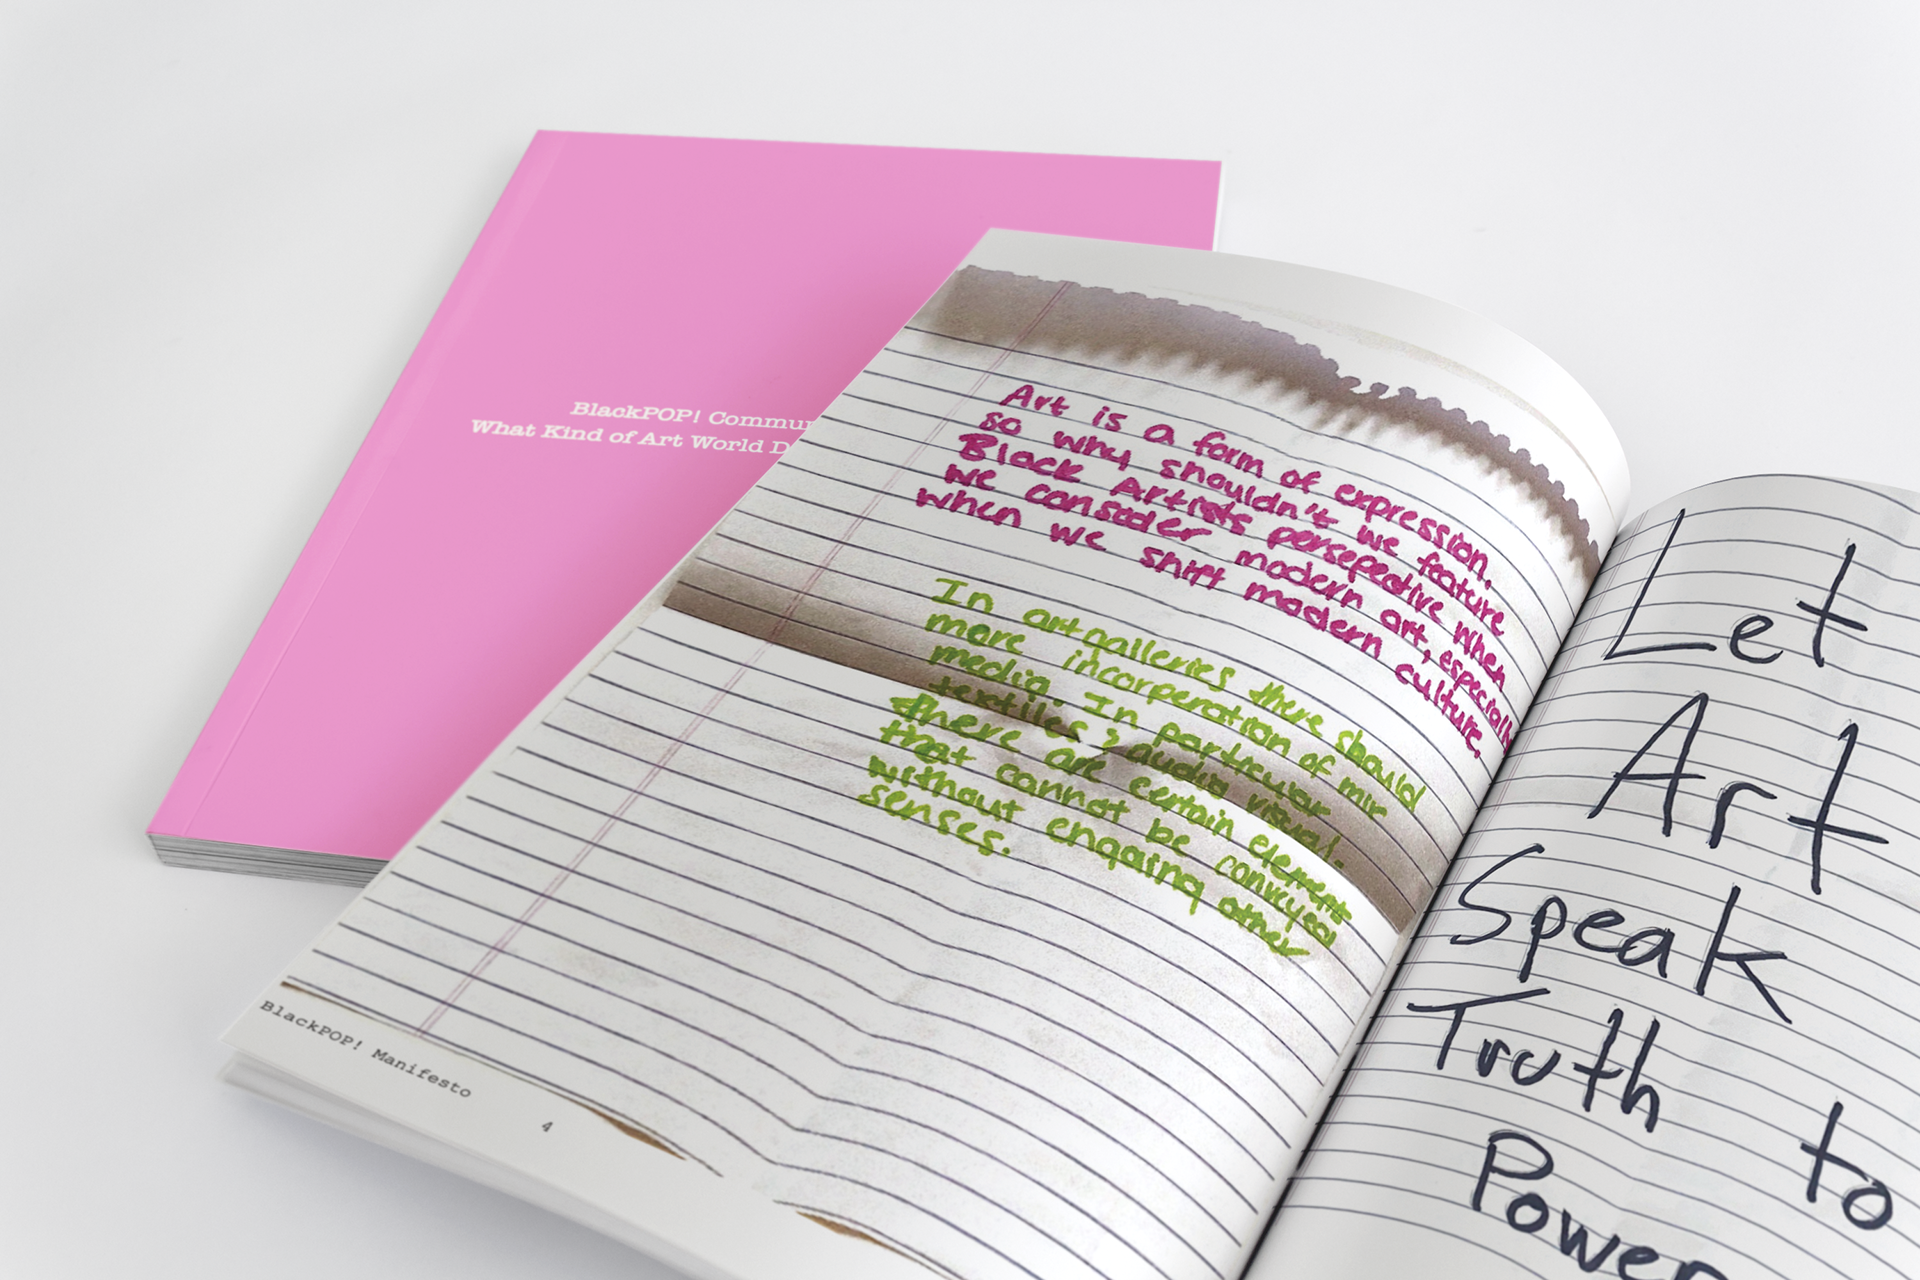 BlackPOP! Commun
What Kind of Art World D
Art is a form of expression,
so why shouldn't we feature
Black Artists persepective when
we consider modern art, especially
when we shift modern culture.
In art galleries there should
more incorperation of mix
media. In particular
textiles & audio visual.
there are certain element
that cannot be conveyed
without engaging other
senses.
BlackPOP! Manifesto
4
Let
Art
Speak
Truth to
Power